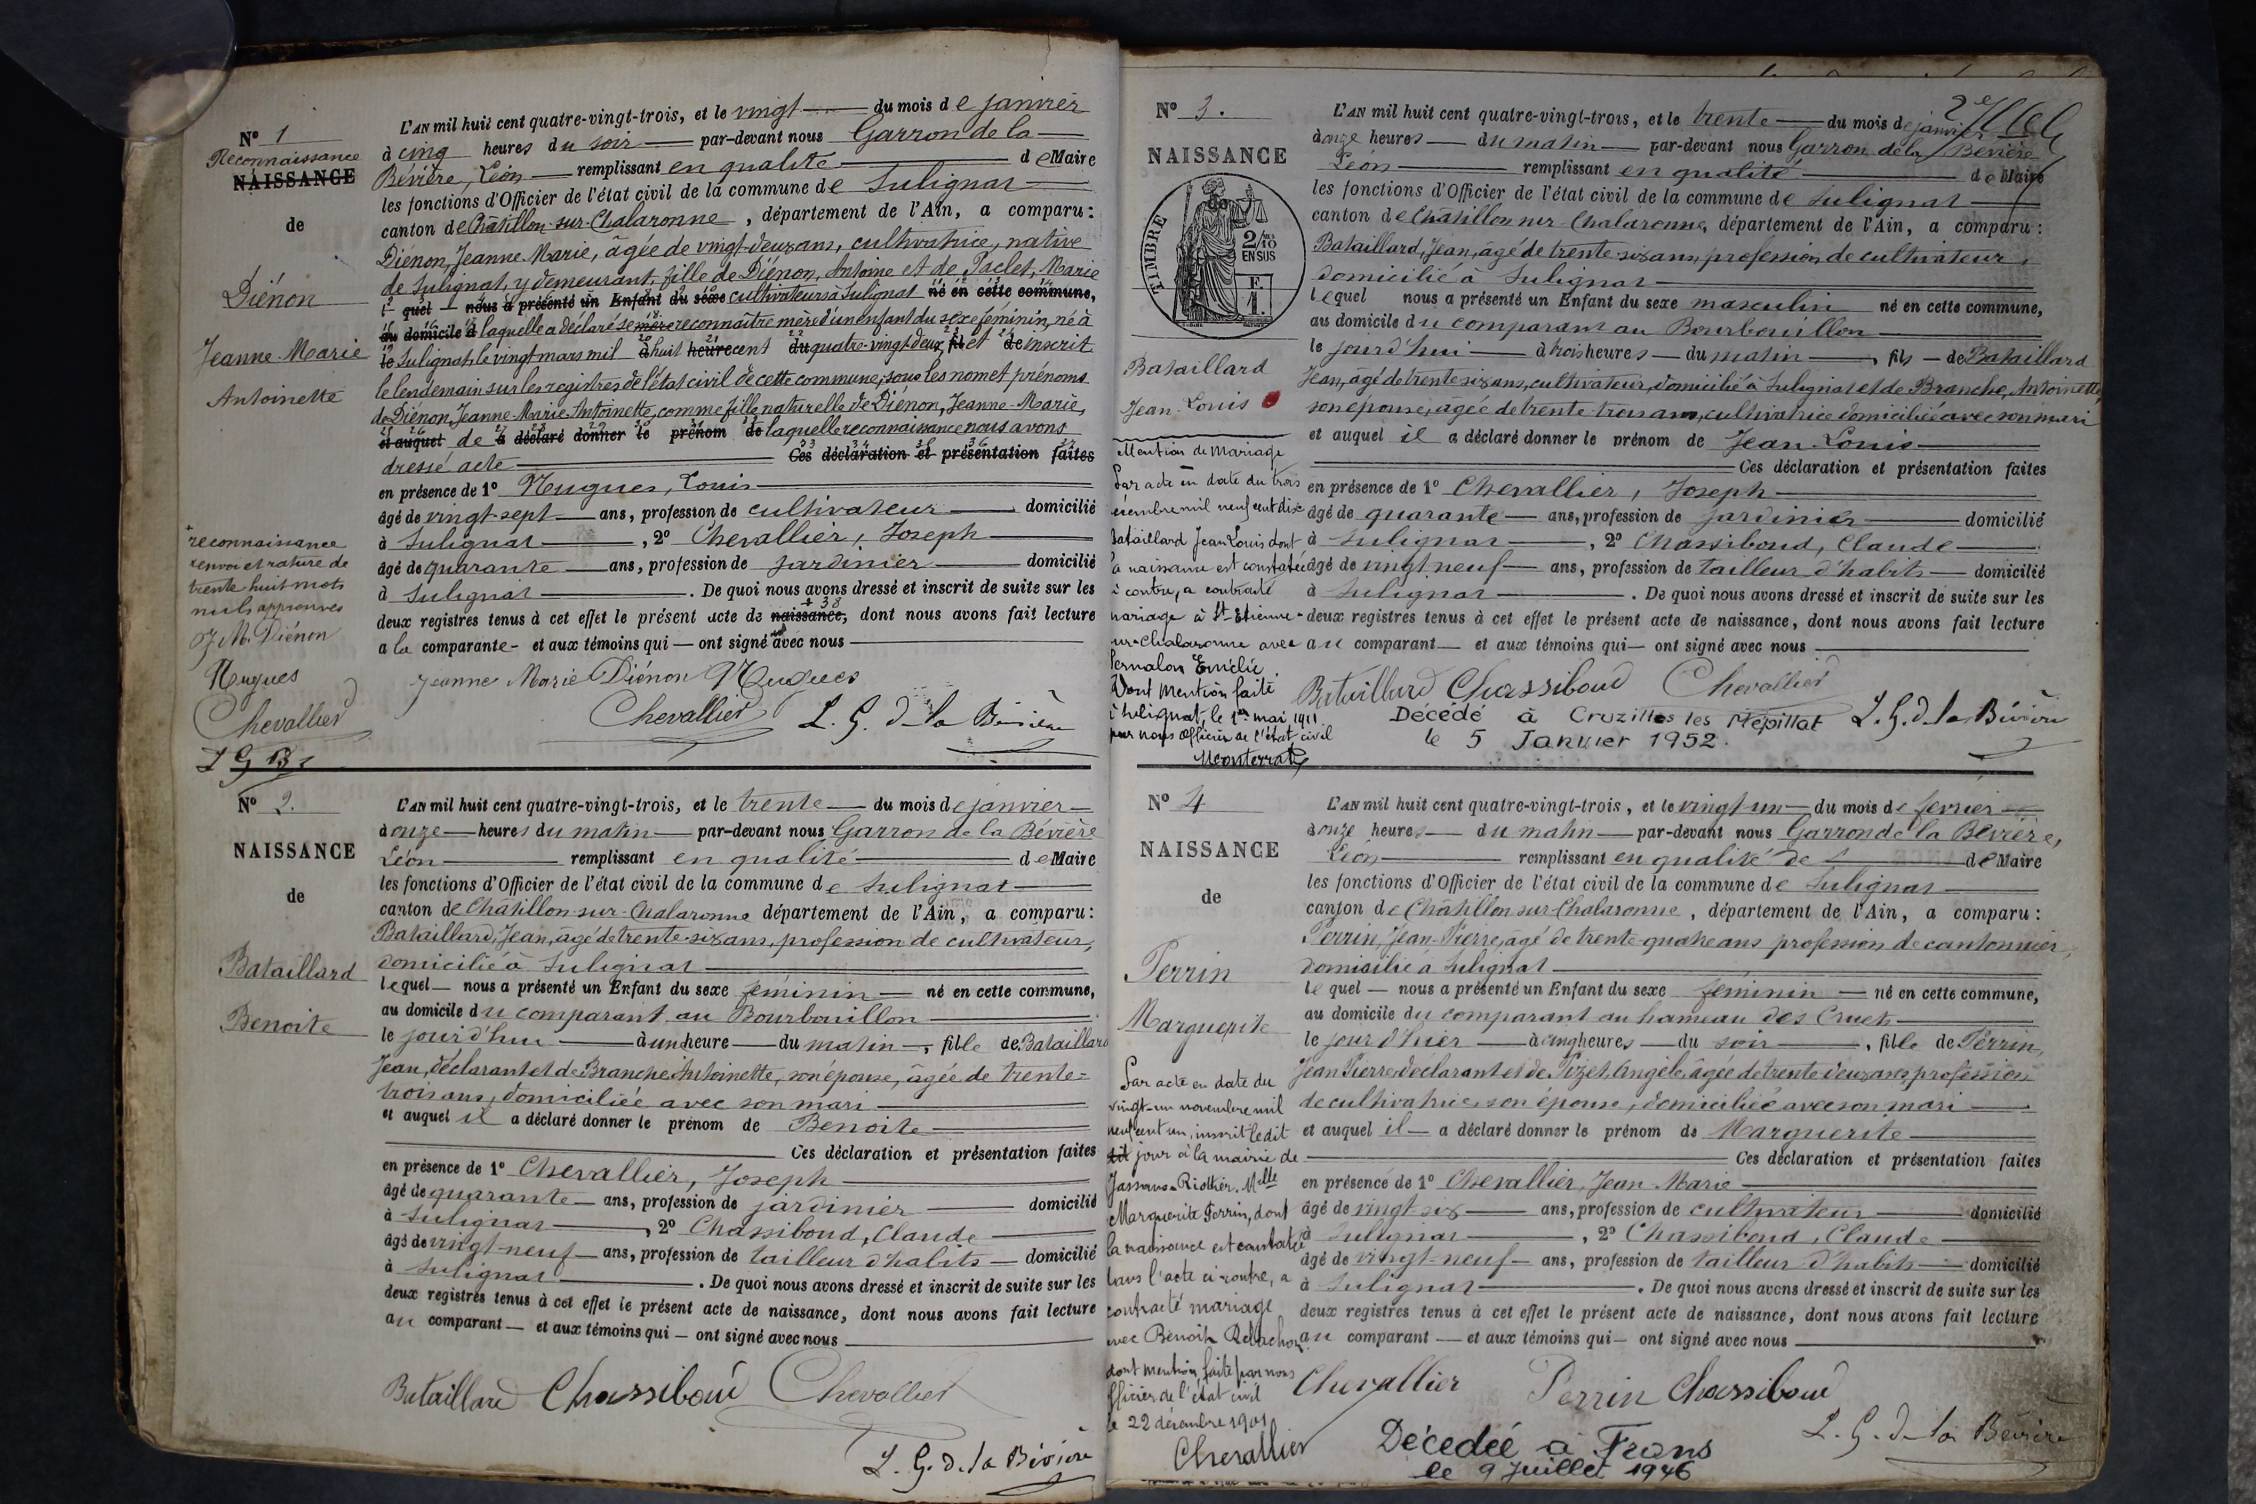 N° 1
Reconnaissance
NAISSANCE
de
Diénon
Jeanne-Marie
Antoinette
L'AN mil huit cent quatre-vingt-trois, et le vingt du mois de janvier
à cinq heures du soir par-devant nous Garron de la
Bévière, Léon remplissant en qualité de Maire
les fonctions d'Officier de l'état civil de la commune de Sulignat
canton de Châtillon-sur-Chalaronne, département de l'Ain, a comparu:
Diénon, Jeanne Marie, âgée de vingt-deux ans, cultivatrice, native
de Sulignat, y demeurant, fille de Diénon, Antoine et de Paclet, Marie
l quel nous a présenté un Enfant du sexe cultivateurs à Sulignat né en cette commune,
au domicile d laquelle a déclaré se reconnaître mère d'un enfant du sexe féminin, né à
le Sulignat, le vingt mars mil à huit heure cent du quatre-vingt-deux fil et de inscrit
le lendemain sur les registres de l'état civil de cette commune, sous les nom et prénoms
de Diénon, Jeanne-Marie-Antoinette, comme fille naturelle de Diénon, Jeanne-Marie,
et auquel de a déclaré donner le prénom de laquelle reconnaissance nous avons
dressé acte Ces déclaration et présentation faites
en présence de 1° Nugues, Louis
âgé de vingt-sept ans, profession de cultivateur domicilié
à Sulignat, 2° Chevallier, Joseph
âgé de quarante ans, profession de jardinier domicilié
à Sulignat. De quoi nous avons dressé et inscrit de suite sur les
deux registres tenus à cet effet le présent acte de naissance, dont nous avons fait lecture
a la comparante et aux témoins qui ont signé avec nous
+
reconnaissance
renvoi et rature de
trente huit mots
nuls approuvés
J M. Diénon
Nugues
Chevallier
L G B
Jeanne Marie Diénon Nugues
Chevallier L. G. d. la Bévière
N° 2.
NAISSANCE
de
Bataillard
Benoite
L'AN mil huit cent quatre-vingt-trois, et le trente du mois de janvier
à onze heures du matin par-devant nous Garron de la Bévière
Léon remplissant en qualité de Maire
les fonctions d'Officier de l'état civil de la commune de Sulignat
canton de Châtillon-sur-Chalaronne département de l'Ain, a comparu:
Bataillard, Jean, âgé de trente-six ans, profession de cultivateur,
domicilié à Sulignat
lequel nous a présenté un Enfant du sexe féminin né en cette commune,
au domicile du comparant au Bourbouillon
le jourd'hui à un heure du matin, fille de Bataillard
Jean, déclarant et de Branche Antoinette, son épouse, âgée de trente-
trois ans, domiciliée avec son mari
et auquel il a déclaré donner le prénom de Benoite
Ces déclaration et présentation faites
en présence de 1° Chevallier, Joseph
âgé de quarante ans, profession de jardinier domicilié
à Sulignat, 2° Chassiboud, Claude
âgé de vingt-neuf ans, profession de tailleur d'habits domicilié
à Sulignat. De quoi nous avons dressé et inscrit de suite sur les
deux registres tenus à cet effet le présent acte de naissance, dont nous avons fait lecture
au comparant et aux témoins qui ont signé avec nous
Bataillard Chassiboud Chevallier
L. G. d. la Bévière
N° 3.
NAISSANCE
TIMBRE
2/10 EN SUS
F. 1.
Bataillard
Jean-Louis
L'AN mil huit cent quatre-vingt-trois, et le trente du mois de janvier
à onze heures du matin par-devant nous Garron de la Bévière
Léon remplissant en qualité de Maire
les fonctions d'Officier de l'état civil de la commune de Sulignat
canton de Châtillon sur Chalaronne, département de l'Ain, a comparu:
Bataillard, Jean, âgé de trente-six ans, profession de cultivateur,
domicilié à Sulignat
lequel nous a présenté un Enfant du sexe masculin né en cette commune,
au domicile du comparant au Bourbouillon
le jourd'hui à trois heures du matin, fils de Bataillard
Jean, âgé de trente-six ans, cultivateur, domicilié à Sulignat et de Branche, Antoinette,
son épouse, âgée de trente-trois ans, cultivatrice domiciliée avec son mari
et auquel il a déclaré donner le prénom de Jean-Louis
Ces déclaration et présentation faites
en présence de 1° Chevallier, Joseph
âgé de quarante ans, profession de jardinier domicilié
à Sulignat, 2° Chassiboud, Claude
âgé de vingt neuf ans, profession de tailleur d'habits domicilié
à Sulignat. De quoi nous avons dressé et inscrit de suite sur les
deux registres tenus à cet effet le présent acte de naissance, dont nous avons fait lecture
au comparant et aux témoins qui ont signé avec nous
Bataillard Chassiboud Chevallier
L. G. d. la Bévière
Décédé à Cruzilles les Mépillat
le 5 Janvier 1952.
Mention de Mariage
Par acte en date du trois
mil neuf cent dix
Bataillard Jean Louis dont
la naissance est constatée
ci contre, a contracté
mariage à St Etienne-
sur-Chalaronne avec
Pernalon Emélie
Dont Mention faite
à Sulignat, le 1er mai 1911
par nous Officier de l'état civil
Monterrat
N° 4
NAISSANCE
de
Perrin
Marguerite
L'AN mil huit cent quatre-vingt-trois, et le vingt-un du mois de février
à onze heures du matin par-devant nous Garron de la Bévière,
Léon remplissant en qualité de de Maire
les fonctions d'Officier de l'état civil de la commune de Sulignat
canton de Châtillon sur Chalaronne, département de l'Ain, a comparu:
Perrin, Jean-Pierre, âgé de trente-quatre ans profession de cantonnier,
domicilié à Sulignat
le quel nous a présenté un Enfant du sexe féminin né en cette commune,
au domicile du comparant au hameau des Cruets
le jour d'hier à cinq heures du soir, fille de Perrin,
Jean Pierre, déclarant et de Pizet, Angèle, âgée de trente-deux ans, profession
de cultivatrice, son épouse, domiciliée avec son mari
et auquel il a déclaré donner le prénom de Marguerite
Ces déclaration et présentation faites
en présence de 1° Chevallier, Jean-Marie
âgé de vingt-six ans, profession de cultivateur domicilié
à Sulignat, 2° Chassiboud, Claude
âgé de vingt-neuf ans, profession de tailleur d'habits domicilié
à Sulignat. De quoi nous avons dressé et inscrit de suite sur les
deux registres tenus à cet effet le présent acte de naissance, dont nous avons fait lecture
au comparant et aux témoins qui ont signé avec nous
Chevallier Perrin Chassiboud
L. G. d. la Bévière
Décédée à Frans
le 9 Juillet 1946
Par acte en date du
vingt-un novembre mil
neuf cent un, inscrit ledit
dit jour à la mairie de
Jassans-Riottier, Melle
Marguerite Perrin, dont
la naissance est constatée
dans l'acte ci-contre, a
contracté mariage
avec Benoît
dont mention faite par nous
officier de l'état civil
le 22 décembre 1901
Chevallier